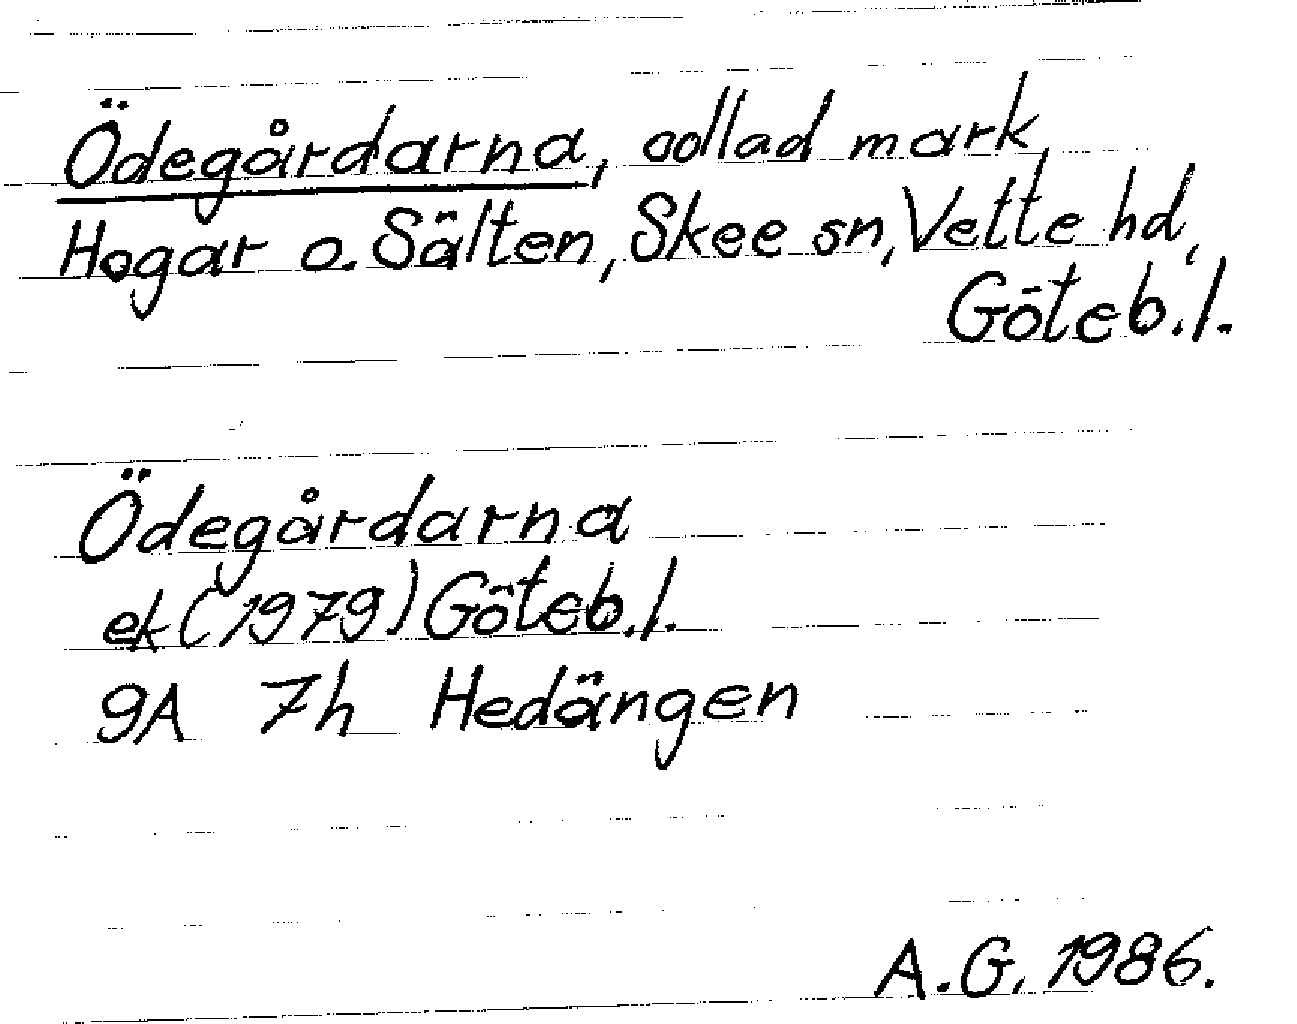 Ödegårdarna, odlad mark,
Hogar o. Sälten, Skee sn, Vette hd,
Göteb.l.
Ödegårdarna
ek (1979) Göteb.l.
9A 7h Hedängen
A.G. 1986.